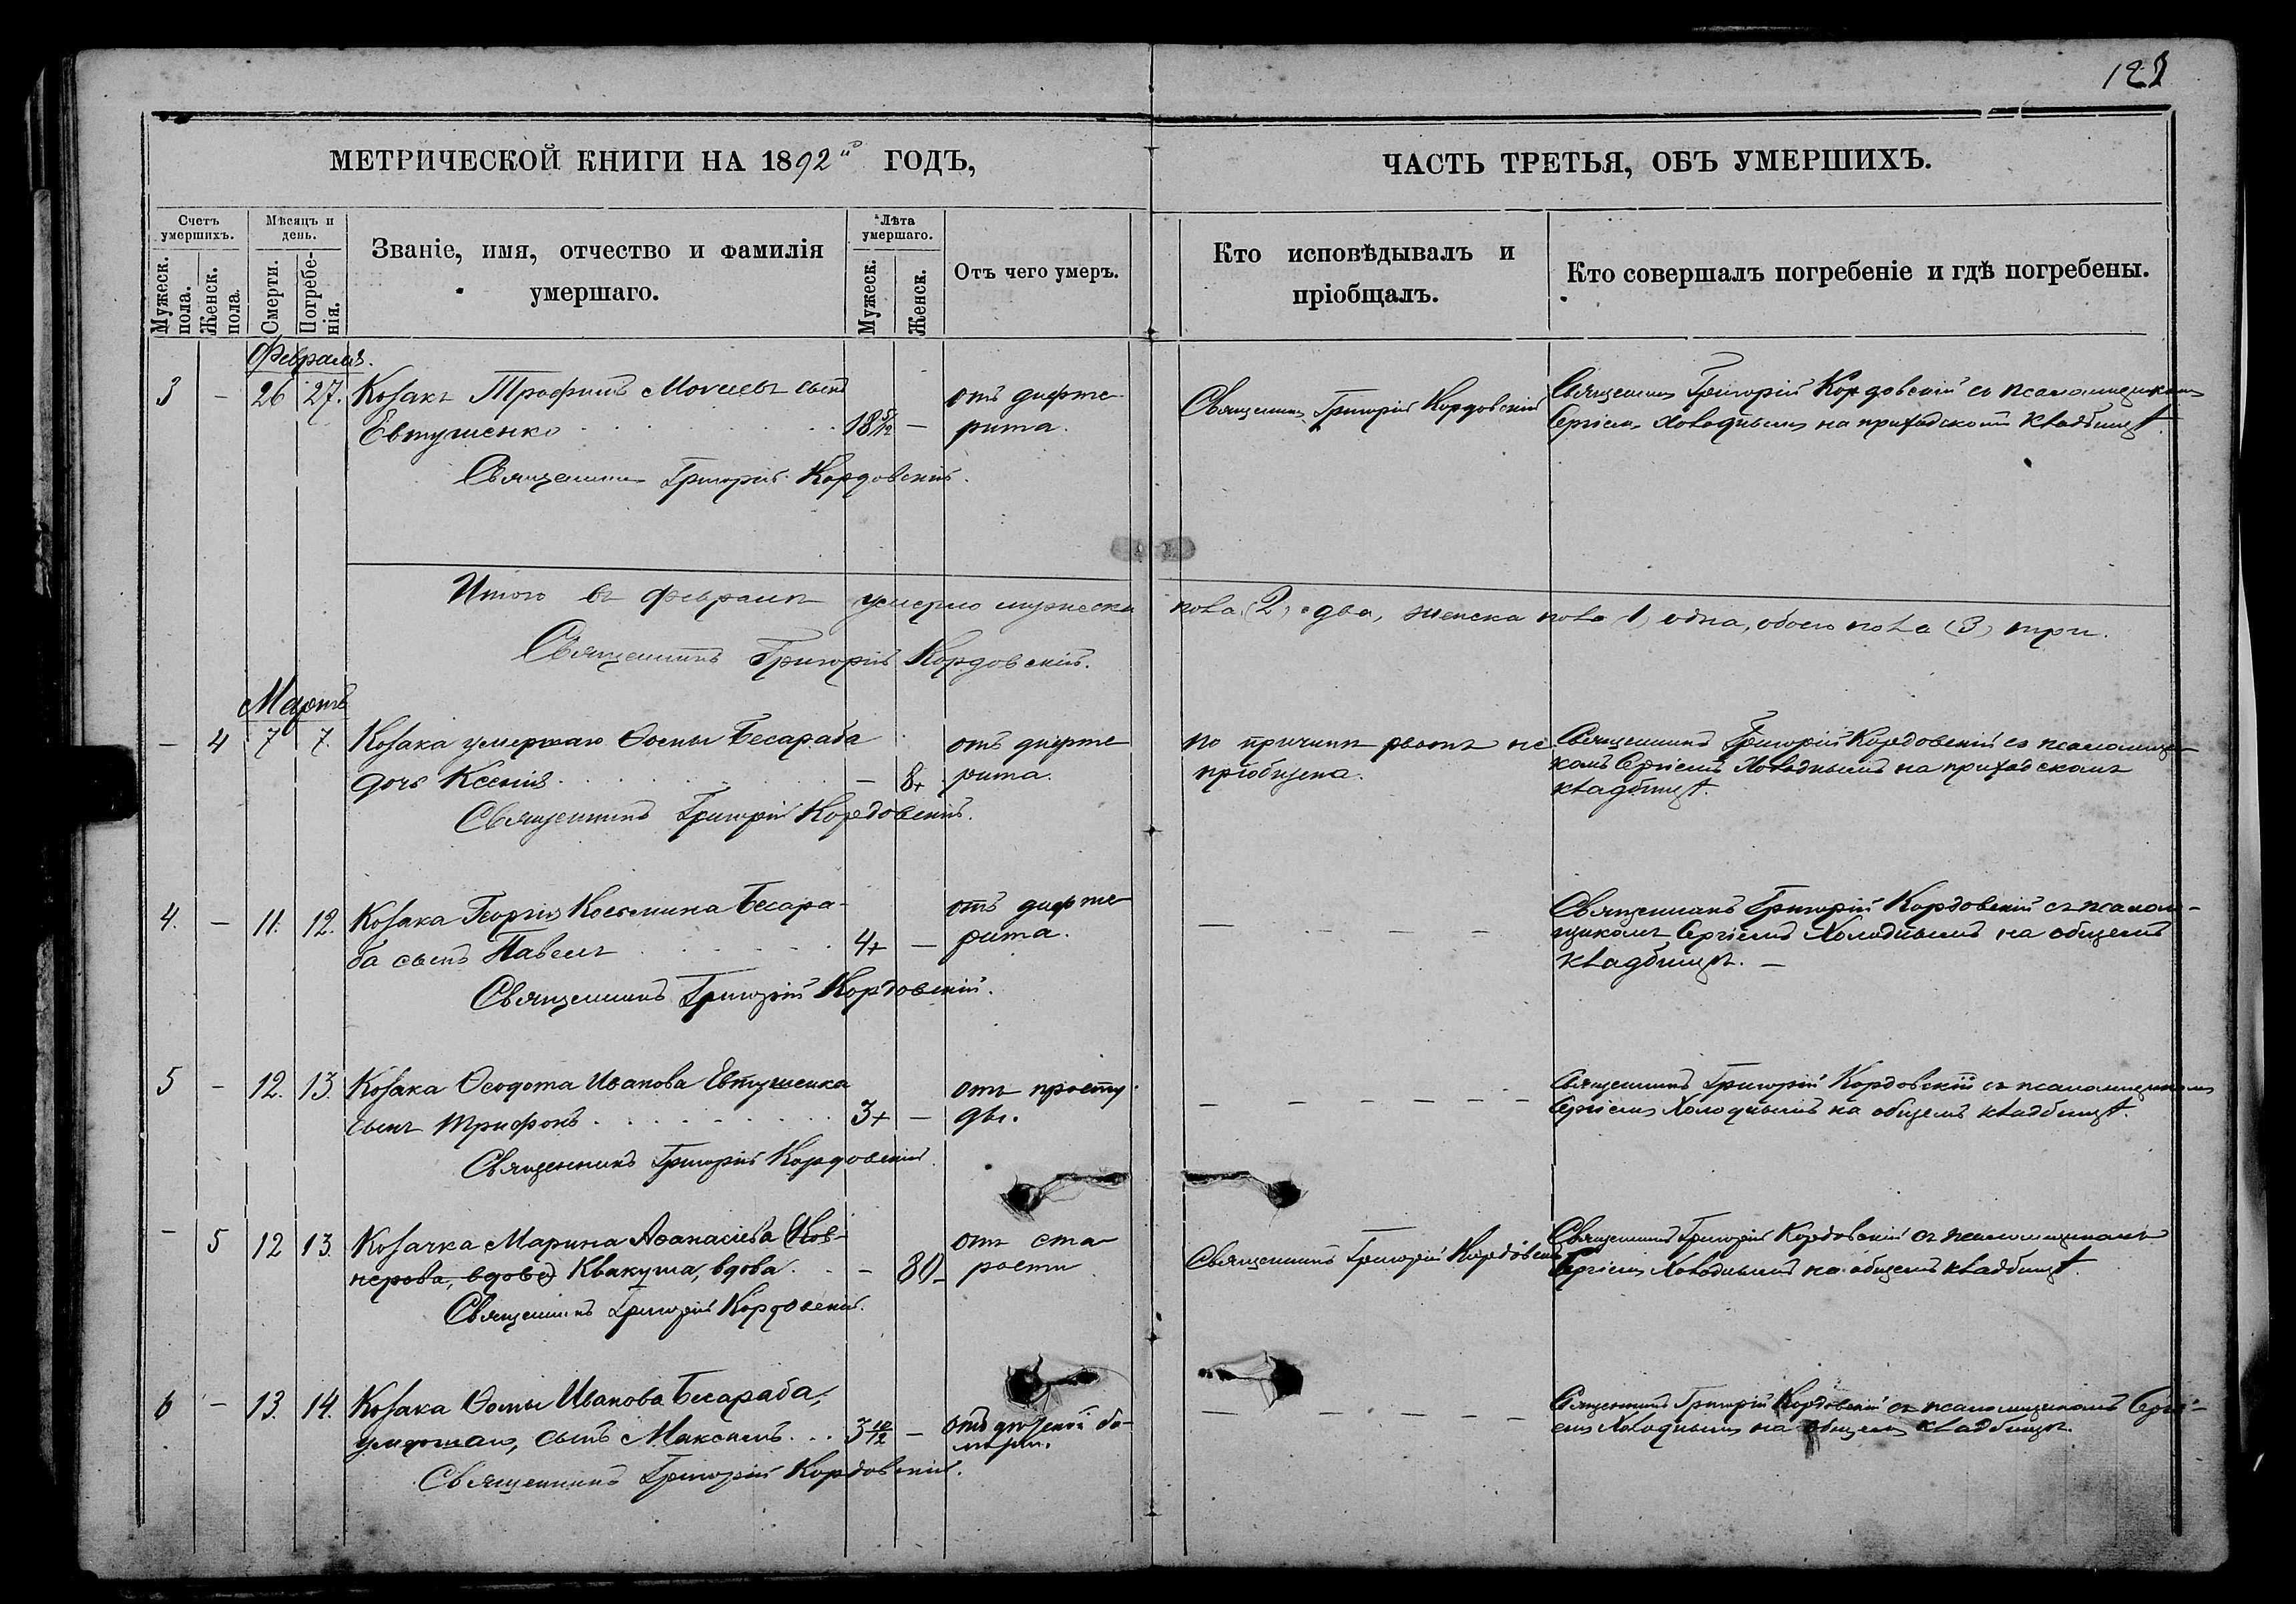 121
МЕТРИЧЕСКОЙ КНИГИ НА 1892й ГОДЪ,
ЧАСТЬ ТРЕТЬЯ, ОБЪ УМЕРШИХЪ.
Счетъ умершихъ.
Мужеск. пола.
Женск. пола.
Мѣсяцъ и день.
Смерти.
Погребенія.
Званіе, имя, отчество и фамилія умершаго.
Лѣта умершаго.
Мужеск.
Женск.
Отъ чего умеръ.
Кто исповѣдывалъ и пріобщалъ.
Кто совершалъ погребеніе и гдѣ погребены.
Февраль.
3 - 26 27. Козакъ Трофимъ Моисеевъ сынъ
Евтушенко 18 5/12 -
отъ дифте
рита.
Священникъ Григорій Кордовскій
Священникъ Григорій Кордовскій съ псаломщикомъ
Сергіемъ Холоднымъ на приходскомъ кладбищѣ.
Священникъ Григорій Кордовскій.
Итого въ февралѣ умерло мужеска пола (2) два, женска пола (1) одна, обоего пола (3) три.
Священникъ Григорій Кордовскій.
Мартъ
- 4 7 7. Козака умершаго Ѳомы Бесараба
дочь Ксенія - 8+
отъ дифте
рита.
по причинѣ рвотъ не
пріобщена.
Священникъ Григорій Кордовскій съ псаломщи-
комъ Сергіемъ Холоднымъ на приходскомъ
кладбищѣ.
Священникъ Григорій Кордовскій.
4. - 11. 12. Козака Георгія Косьмина Бесара-
ба сынъ Павелъ 4+ -
отъ дифте
рита.
Священникъ Григорій Кордовскій съ псалом-
щикомъ Сергіемъ Холоднымъ на общемъ
кладбищѣ. -
Священникъ Григорій Кордовскій.
5 - 12. 13. Козака Ѳеодота Иванова Евтушенка
сынъ Трифонъ 3+ -
отъ просту
ды.
Священникъ Григорій Кордовскій съ псаломщикомъ
Сергіемъ Холоднымъ на общемъ кладбищѣ.
Священникъ Григорій Кордовскій.
- 5 12 13. Козачка Марина Аѳанасіева (Ков-
нерова, вдова) Квакуша, вдова. - 80
отъ ста
рости
Священникъ Григорій Кордовскій
Священникъ Григорій Кордовскій съ псаломщикомъ
Сергіемъ Холоднымъ на общемъ кладбищѣ.
Священникъ Григорій Кордовскій.
6 - 13. 14. Козака Ѳомы Иванова Бесараба,
умершаго, сынъ Максимъ 3 10/12 -
отъ
Священникъ Григорій Кордовскій съ псаломщикомъ Сергі-
емъ Холоднымъ на общемъ кладбищѣ.
Священникъ Григорій Кордовскій.